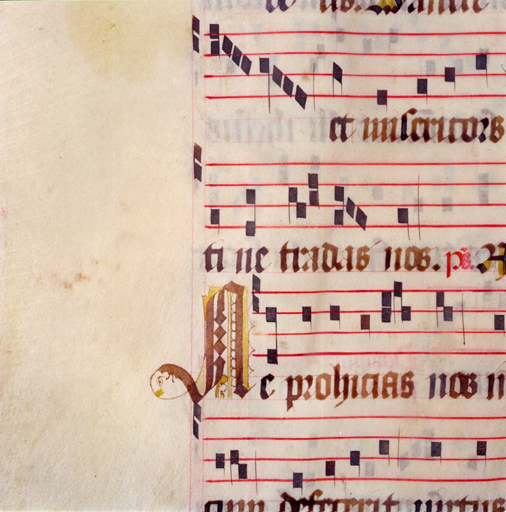 et misericors
ti ne tradas nos. ps. A
Ne prohicias nos n
cum defecerit virtus